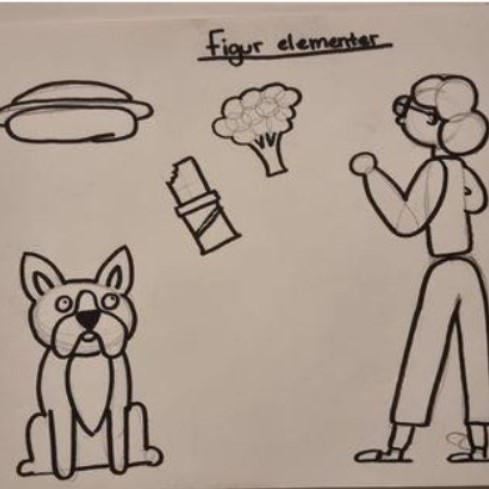 Figur elementer